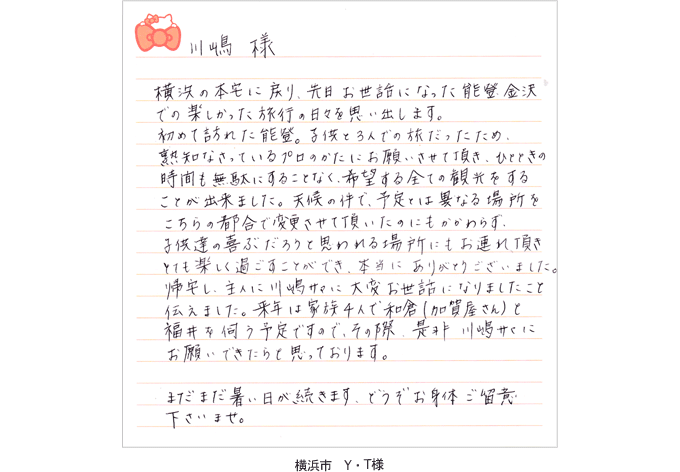 川嶋 様
横浜の本宅に戻り、先日お世話になった能登.金沢
での楽しかった旅行の日々を思い出します。
初めて訪れた能登。子供と3人での旅だったため、
熟知なさっているプロのかたにお願いさせて頂き、ひとときの
時間も無駄にすることなく、希望する全ての観光をする
ことが出来ました。天候の件で、予定とは異なる場所を
こちらの都合で変更させて頂いたのにもかかわらず、
子供達の喜ぶだろうと思われる場所にもお連れ頂き
とても楽しく過ごすことができ、本当にありがとうございました。
帰宅し、主人に川嶋サマに大変お世話になりましたこと
伝えました。来年は家族4人で和倉(加賀屋さん)と
福井を伺う予定ですので、その際、是非 川嶋サマに
お願いできたらと思っております。
まだまだ暑い日が続きます、どうぞお身体ご留意
下さいませ。
横浜市 Y・T様